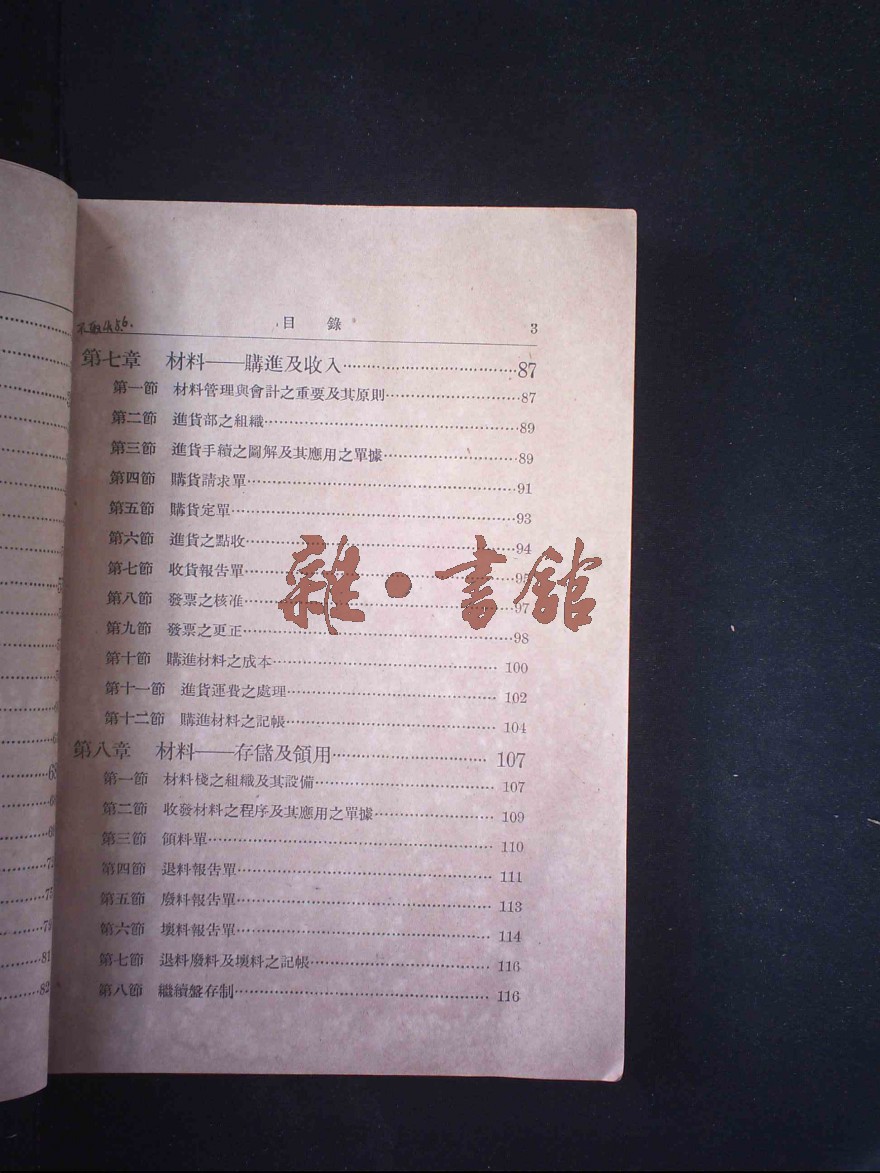 目錄 3
第七章 材料——購進及收入 87
第一節 材料管理與會計之重要及其原則 87
第二節 進貨部之組織 89
第三節 進貨手續之圖解及其應用之單據 89
第四節 購貨請求單 91
第五節 購貨定單 93
第六節 進貨之點收 94
第七節 收貨報告單 95
第八節 發票之核准 97
第九節 發票之更正 98
第十節 購進材料之成本 100
第十一節 進貨運費之處理 102
第十二節 購進材料之記帳 104
第八章 材料——存儲及領用 107
第一節 材料棧之組織及其設備 107
第二節 收發材料之程序及其應用之單據 109
第三節 領料單 110
第四節 退料報告單 111
第五節 廢料報告單 113
第六節 壞料報告單 114
第七節 退料廢料及壞料之記帳 116
第八節 繼續盤存制 116
雜·書館